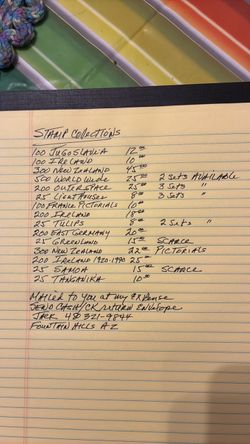 STAMP COLLECTIONS
100 JUGOSLAVIA 12.00
100 IRELAND 10.00
300 NEW ZEALAND 45.00
500 WORLD WIDE 25.00 2 SETS AVAILABLE
200 OUTER SPACE 25.00 3 SETS "
25 LIGHTHOUSES 8.00 3 SETS "
100 FRANCE PICTORIALS 10.00
200 IRELAND 18.00
25 TULIPS 8.00 2 SETS "
200 EAST GERMANY 20.00
25 GREENLAND 15.00 SCARCE
300 NEW ZEALAND 32.00 PICTORIALS
200 IRELAND 1920-1990 25.00
25 SAMOA 15.00 SCARCE
25 TANGANIKA 10.00
MAILED TO YOU AT MY EXPENSE
SEND CASH/CK RETURN ENVELOPE
JACK 480 321-9844
FOUNTAIN HILLS AZ